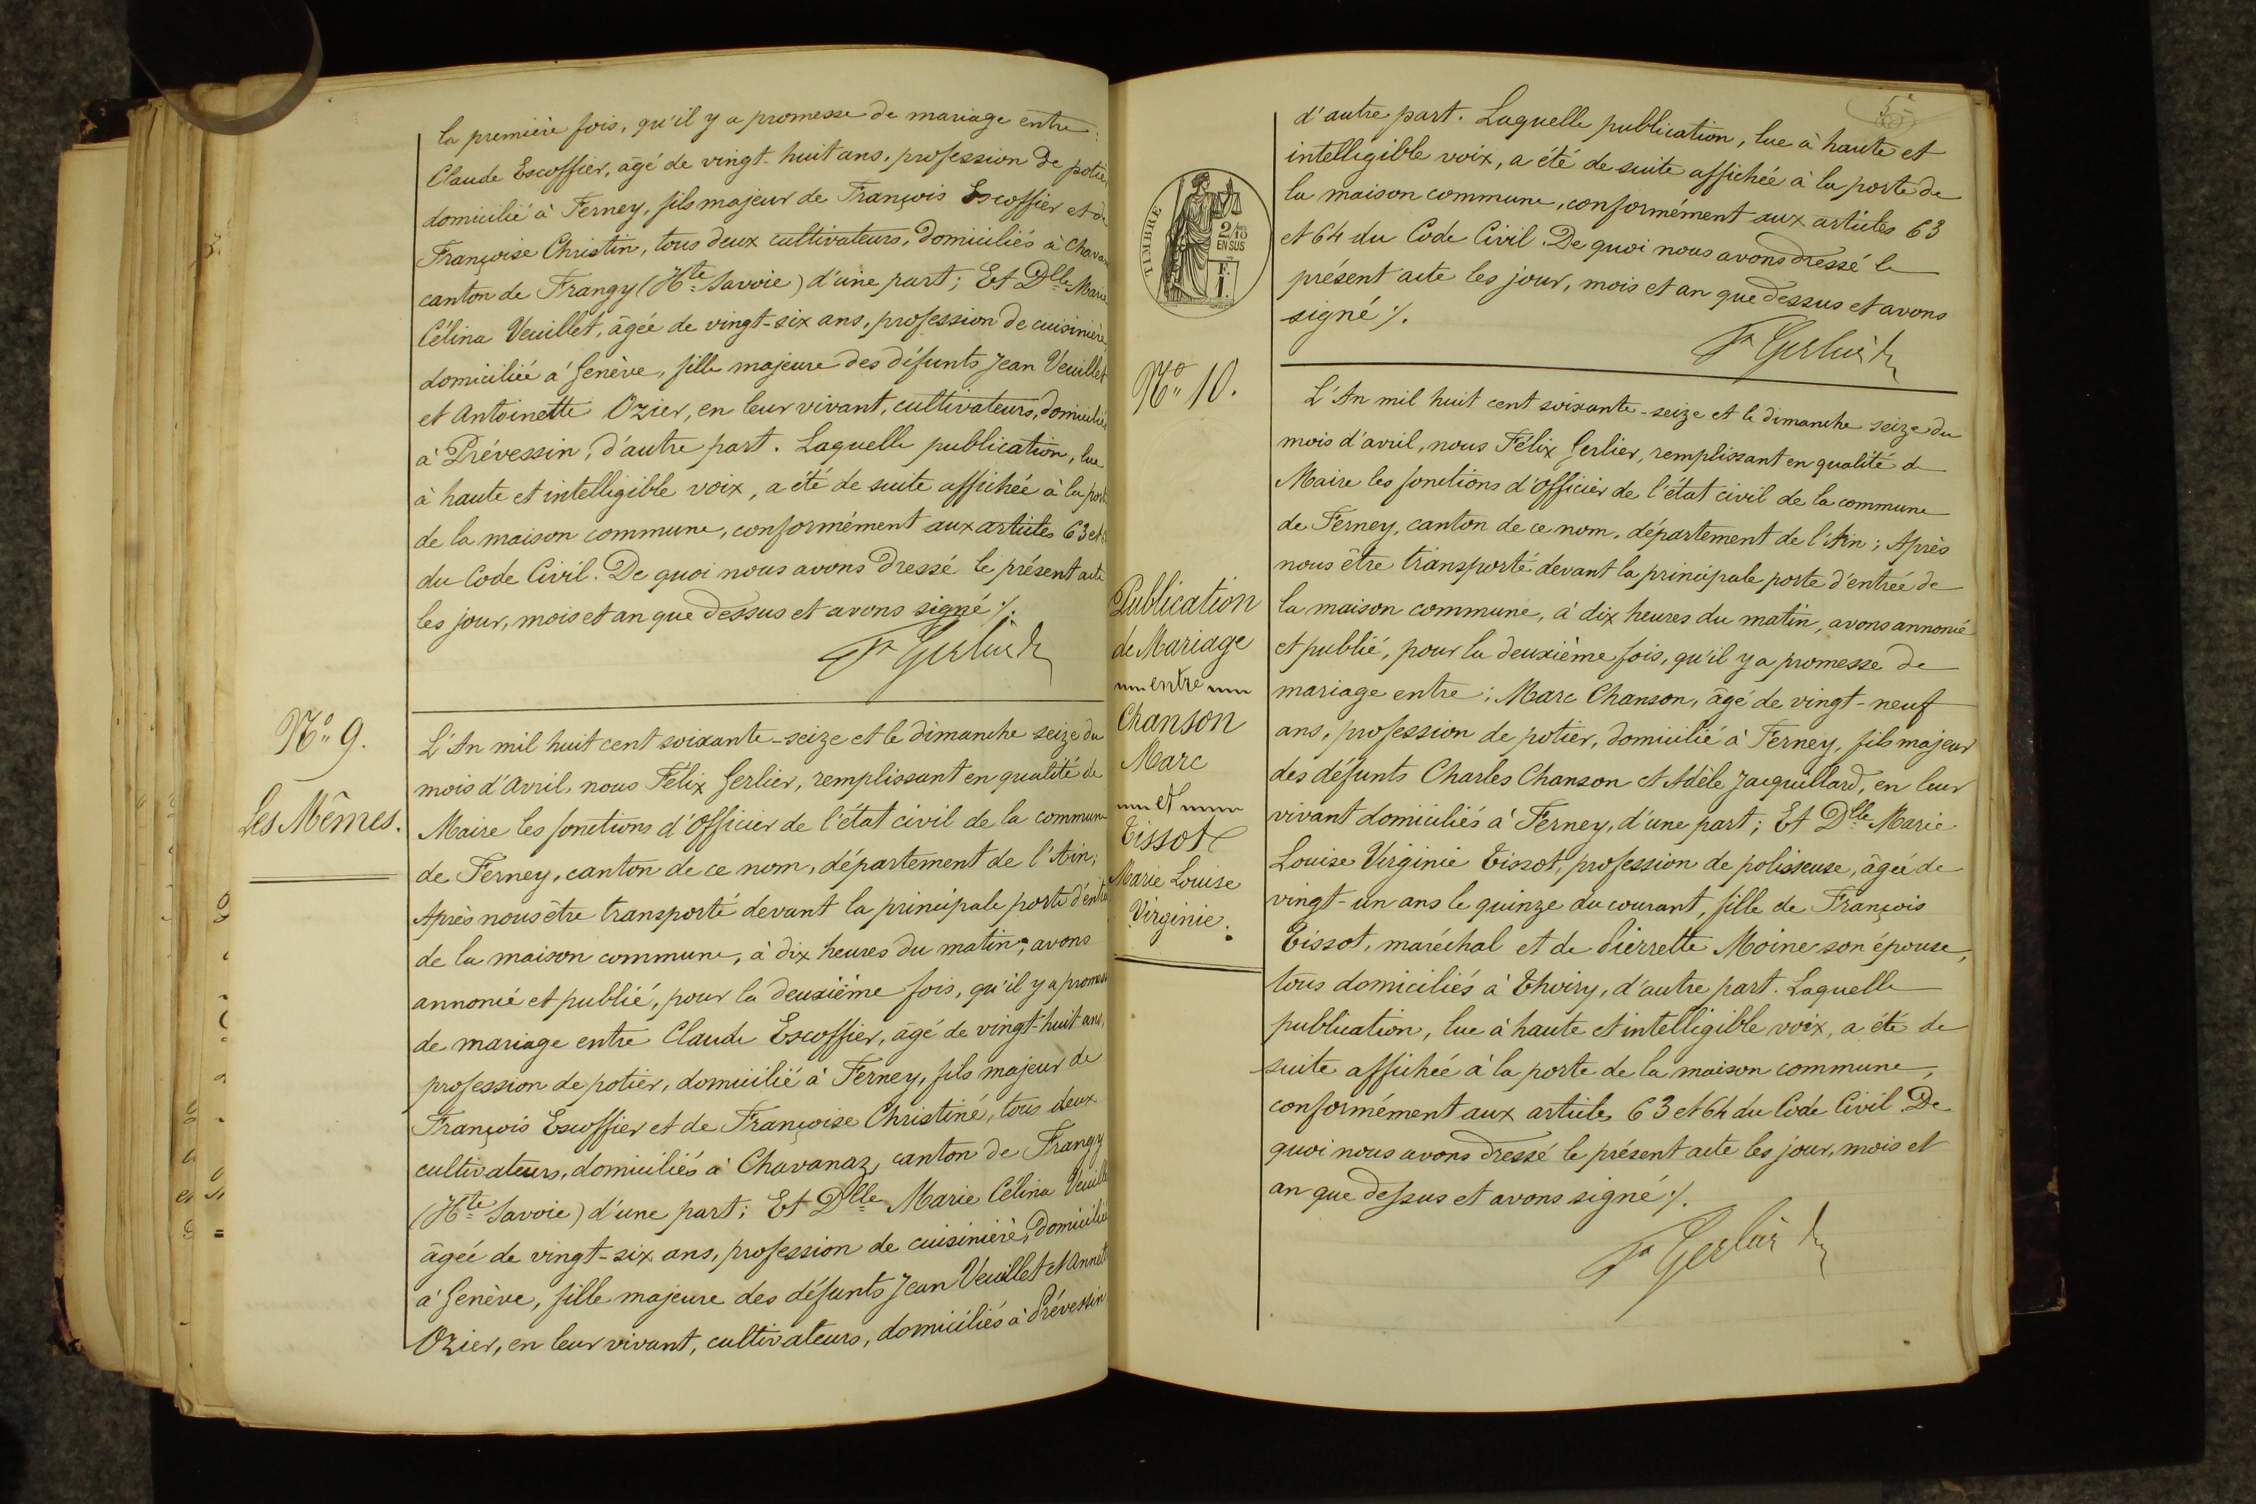 la première fois, qu'il y a promesse de mariage entre:
Claude Escoffier, âgé de vingt-huit ans, profession de potier
domicilié à Ferney, fils majeur de François Escoffier et de
Françoise Christin, tous deux cultivateurs, domiciliés à Chavan
canton de Frangy (Hte Savoie) d'une part; Et Dlle Marie
Célina Veuillet, âgée de vingt-six ans, profession de cuisinière,
domiciliée à Genève, fille majeure des défunts Jean Veuillet
et Antoinette Ozier, en leur vivant, cultivateurs, domiciliés
à Prévessin, d'autre part. Laquelle publication, lue
à haute et intelligible voix, a été de suite affichée à la porte
de la maison commune, conformément aux articles 63 et
du Code Civil. De quoi nous avons dressé le présent acte
les jour, mois et an que dessus et avons signé ./.
Fx Gerlier
No 9.
Les Mêmes.
L'An mil huit cent soixante-seize et le dimanche seize du
mois d'Avril, nous Félix Gerlier, remplissant en qualité de
Maire les fonctions d'Officier de l'état civil de la commune
de Ferney, canton de ce nom, département de l'Ain;
Après nous être transporté devant la principale porte d'entrée
de la maison commune, à dix heures du matin, avons
annoncé et publié, pour la deuxième fois, qu'il y a promesse
de mariage entre Claude Escoffier, âgé de vingt-huit ans,
profession de potier, domicilié à Ferney, fils majeur de
François Escoffier et de Françoise Christiné, tous deux
cultivateurs, domiciliés à Chavanaz, canton de Frangy
(Hte Savoie) d'une part; Et Dlle Marie Célina Veuille
âgée de vingt-six ans, profession de cuisinière, domiciliée
à Genève, fille majeure des défunts Jean Veuillet et Annet
Ozier, en leur vivant, cultivateurs, domiciliés à Prévessin
5
TIMBRE
2/10
EN SUS
F.
I.
d'autre part. Laquelle publication, lue à haute et
intelligible voix, a été de suite affichée à la porte de
la maison commune, conformément aux articles 63
et 64 du Code Civil. De quoi nous avons dressé le
présent acte les jour, mois et an que dessus et avons
signé ./.
Fx Gerlier
No 10.
Publication
de Mariage
entre
Chanson
Marc
et
Tissot
Marie Louise
Virginie.
L'An mil huit cent soixante-seize et le dimanche seize du
mois d'avril, nous Félix Gerlier, remplissant en qualité de
Maire les fonctions d'Officier de l'état civil de la commune
de Ferney, canton de ce nom, département de l'Ain; Après
nous être transporté devant la principale porte d'entrée de
la maison commune, à dix heures du matin, avons annoncé
et publié, pour la deuxième fois, qu'il y a promesse de
mariage entre: Marc Chanson, âgé de vingt-neuf
ans, profession de potier, domicilié à Ferney, fils majeur
des défunts Charles Chanson et Adèle Jacquillard, en leur
vivant domiciliés à Ferney, d'une part; Et Dlle Marie
Louise Virginie Tissot, profession de polisseuse, âgée de
vingt-un ans le quinze du courant, fille de François
Tissot, maréchal et de Pierrette Moine son épouse,
tous domiciliés à Thoiry, d'autre part. Laquelle
publication, lue à haute et intelligible voix, a été de
suite affichée à la porte de la maison commune,
conformément aux articles 63 et 64 du Code Civil. De
quoi nous avons dressé le présent acte les jour, mois et
an que dessus et avons signé ./.
Fx Gerlier